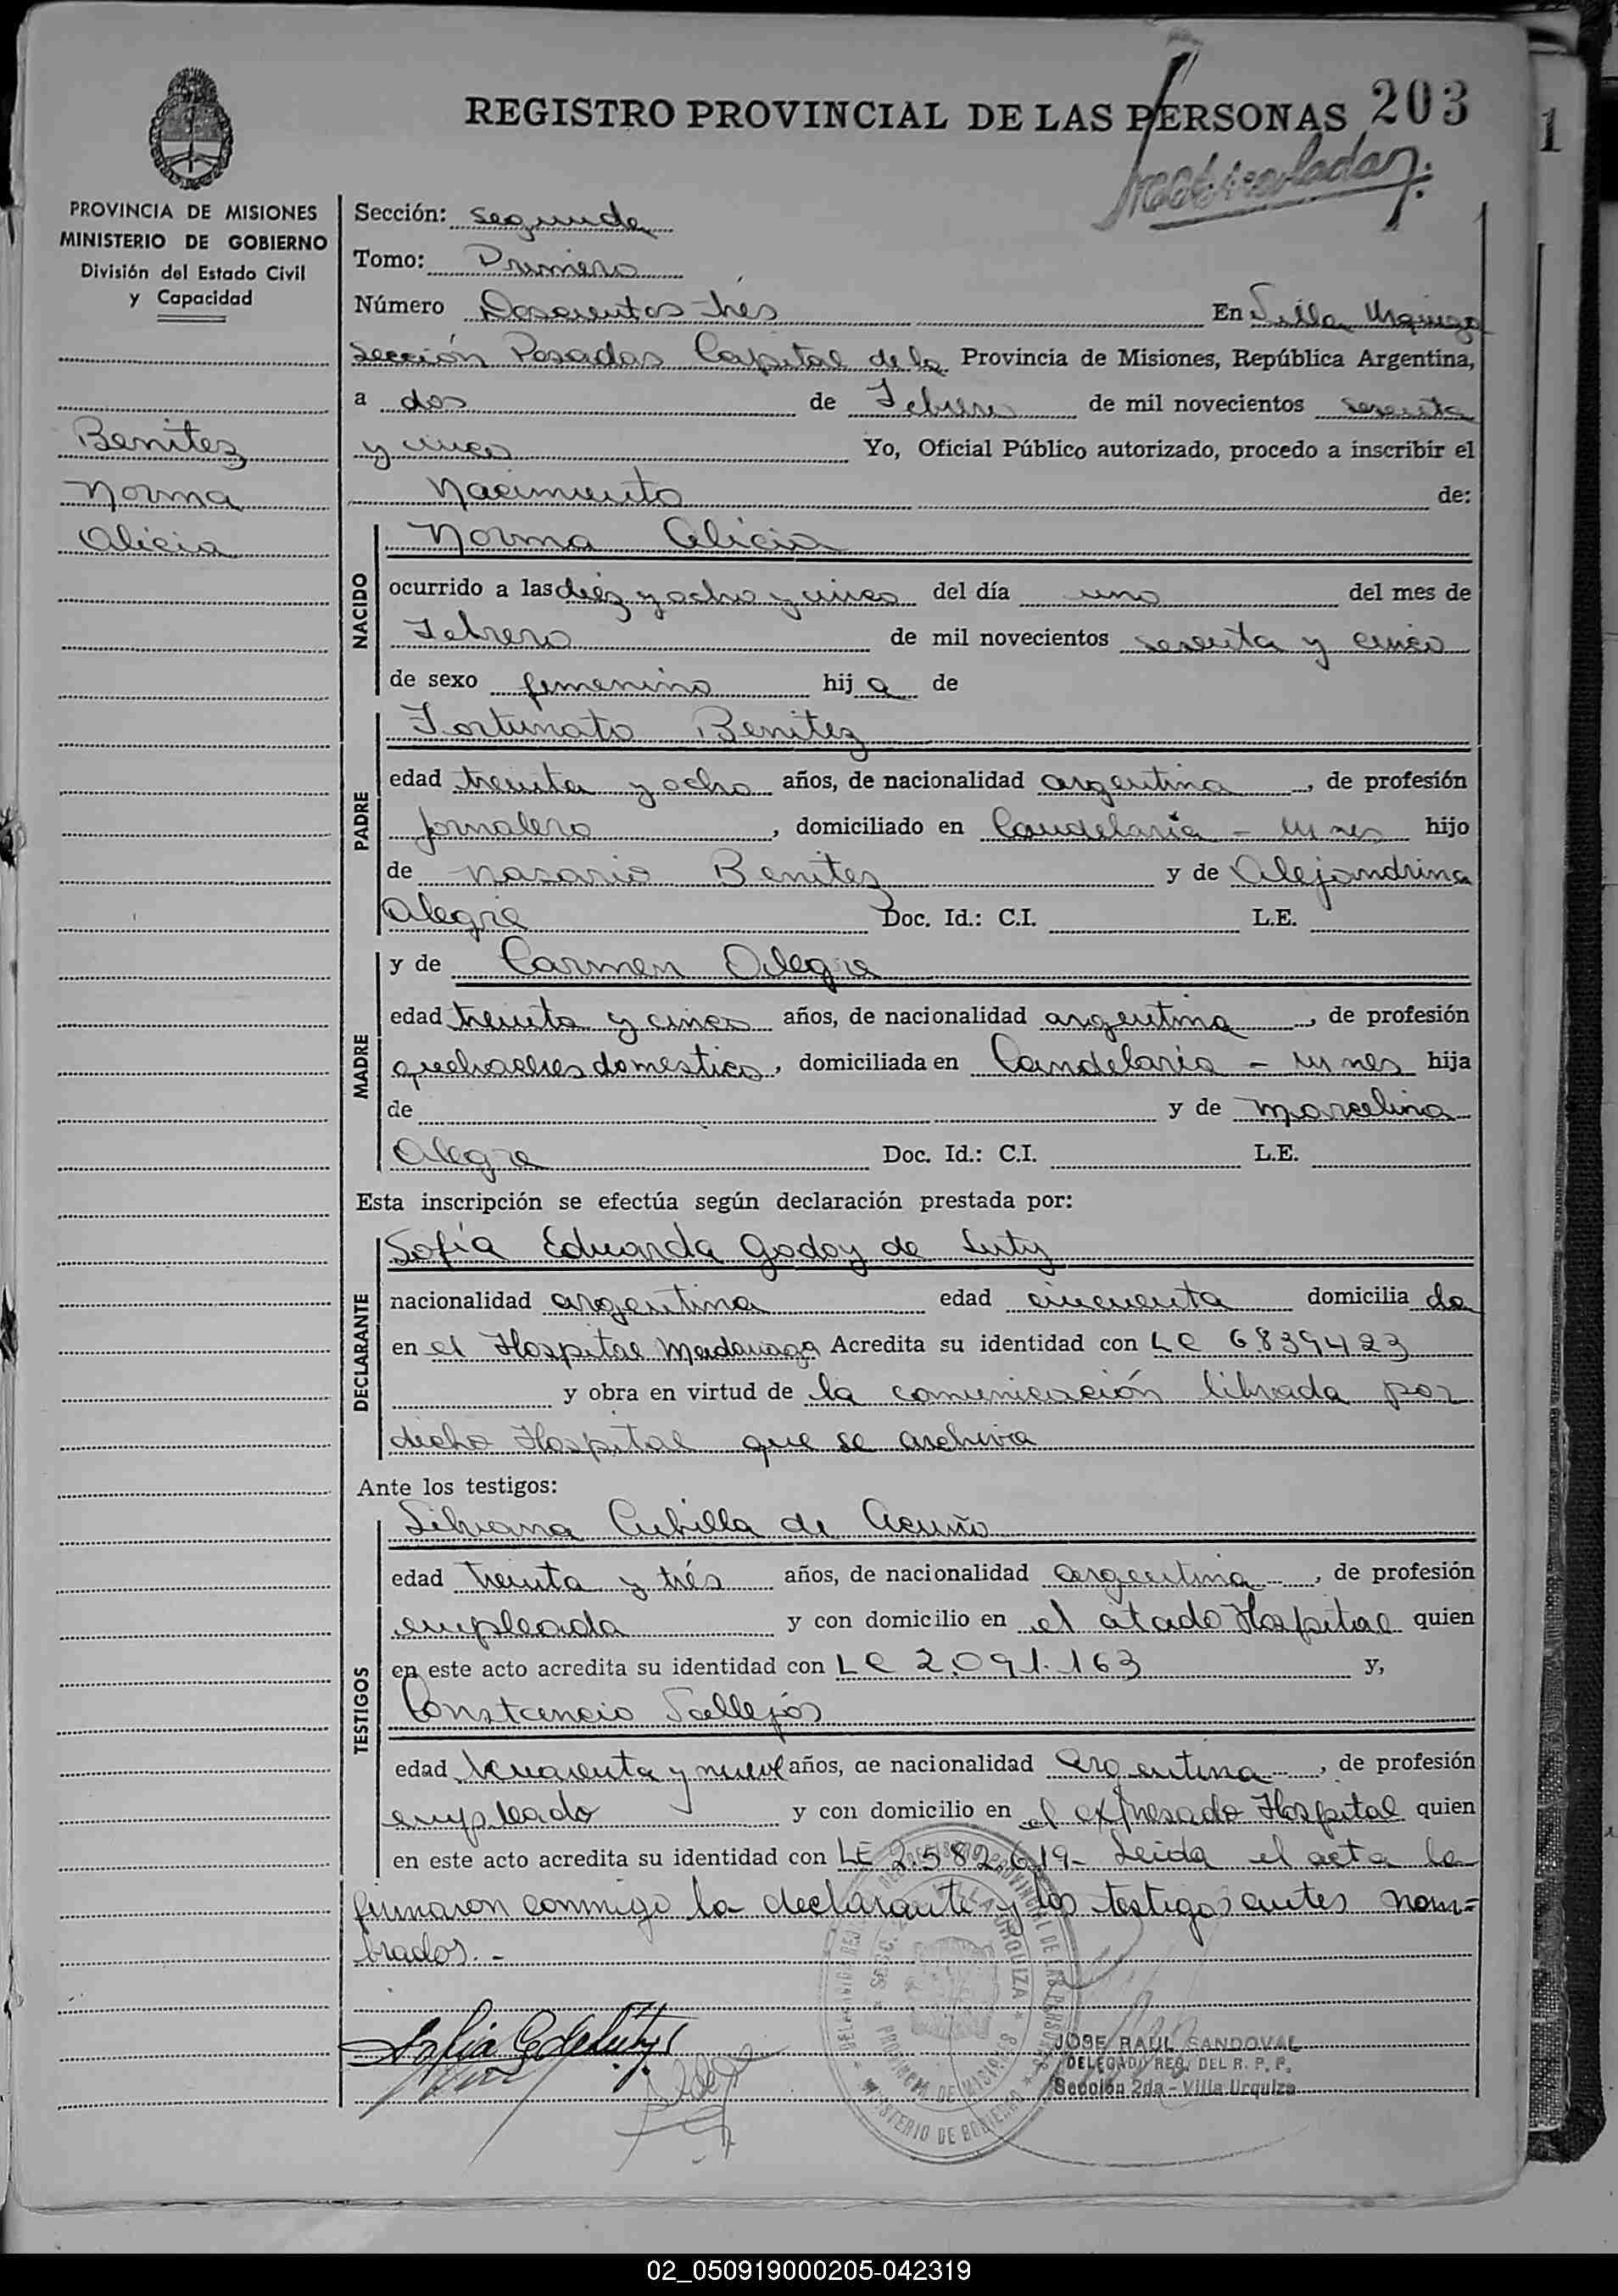 REGISTRO PROVINCIAL DE LAS PERSONAS 203
1
Matriculada
PROVINCIA DE MISIONES
MINISTERIO DE GOBIERNO
División del Estado Civil
y Capacidad
Benitez
Norma
Alicia
Sección: Segunda
Tomo: Primero
Número Doscientos trés En Villa Urquiza
Sección Posadas Capital de la Provincia de Misiones, República Argentina,
a dos de Febrero de mil novecientos sesenta
y cinco Yo, Oficial Público autorizado, procedo a inscribir el
Nacimiento de:
NACIDO
Norma Alicia
ocurrido a las diéz y ocho y cinco del día uno del mes de
Febrero de mil novecientos sesenta y cinco
de sexo femenino hij a de
PADRE
Fortunato Benitez
edad treinta y ocho años, de nacionalidad argentina, de profesión
jornalero, domiciliado en Candelaria - Mnes hijo
de Nasario Benitez y de Alejandrina
Alegre Doc. Id.: C.I. L.E.
MADRE
y de Carmen Alegre
edad treinta y cinco años, de nacionalidad argentina, de profesión
quehaceres domestico, domiciliada en Candelaria - Mnes hija
de y de Marcelina
Alegre Doc. Id.: C.I. L.E.
Esta inscripción se efectúa según declaración prestada por:
DECLARANTE
Sofía Eduarda Godoy de Luty
nacionalidad argentina edad cincuenta domicilia da
en el Hospital Madariaga Acredita su identidad con LC 6.839423
y obra en virtud de la comunicación librada por
dicho Hospital que se archiva
Ante los testigos:
TESTIGOS
Silvana Cubilla de Acuña
edad treinta y trés años, de nacionalidad argentina, de profesión
empleada y con domicilio en el citado Hospital quien
en este acto acredita su identidad con LC 2.091.163 y,
Constancio Vallejos
edad cuarenta y nueve años, de nacionalidad argentina, de profesión
empleado y con domicilio en el expresado Hospital quien
en este acto acredita su identidad con LE 2.582.619- Leida el acta la
firmaron conmigo la declarante y los testigos antes nom=
brados. -
JOSE RAUL SANDOVAL
DELEGADO REG. DEL R. P. P.
Sección 2da - Villa Urquiza
02_050919000205-042319